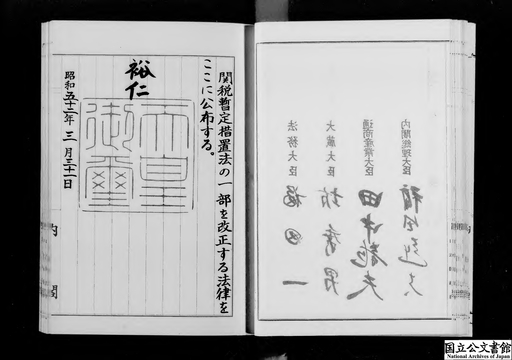 内閣総理大臣 福田赳夫
通商産業大臣 田中龍夫
大蔵大臣 坊秀男
法務大臣 福田一
関税暫定措置法の一部を改正する法律を
ここに公布する。
裕仁
天皇
御璽
昭和五十二年三月三十一日
内閣
国立公文書館
National Archives of Japan